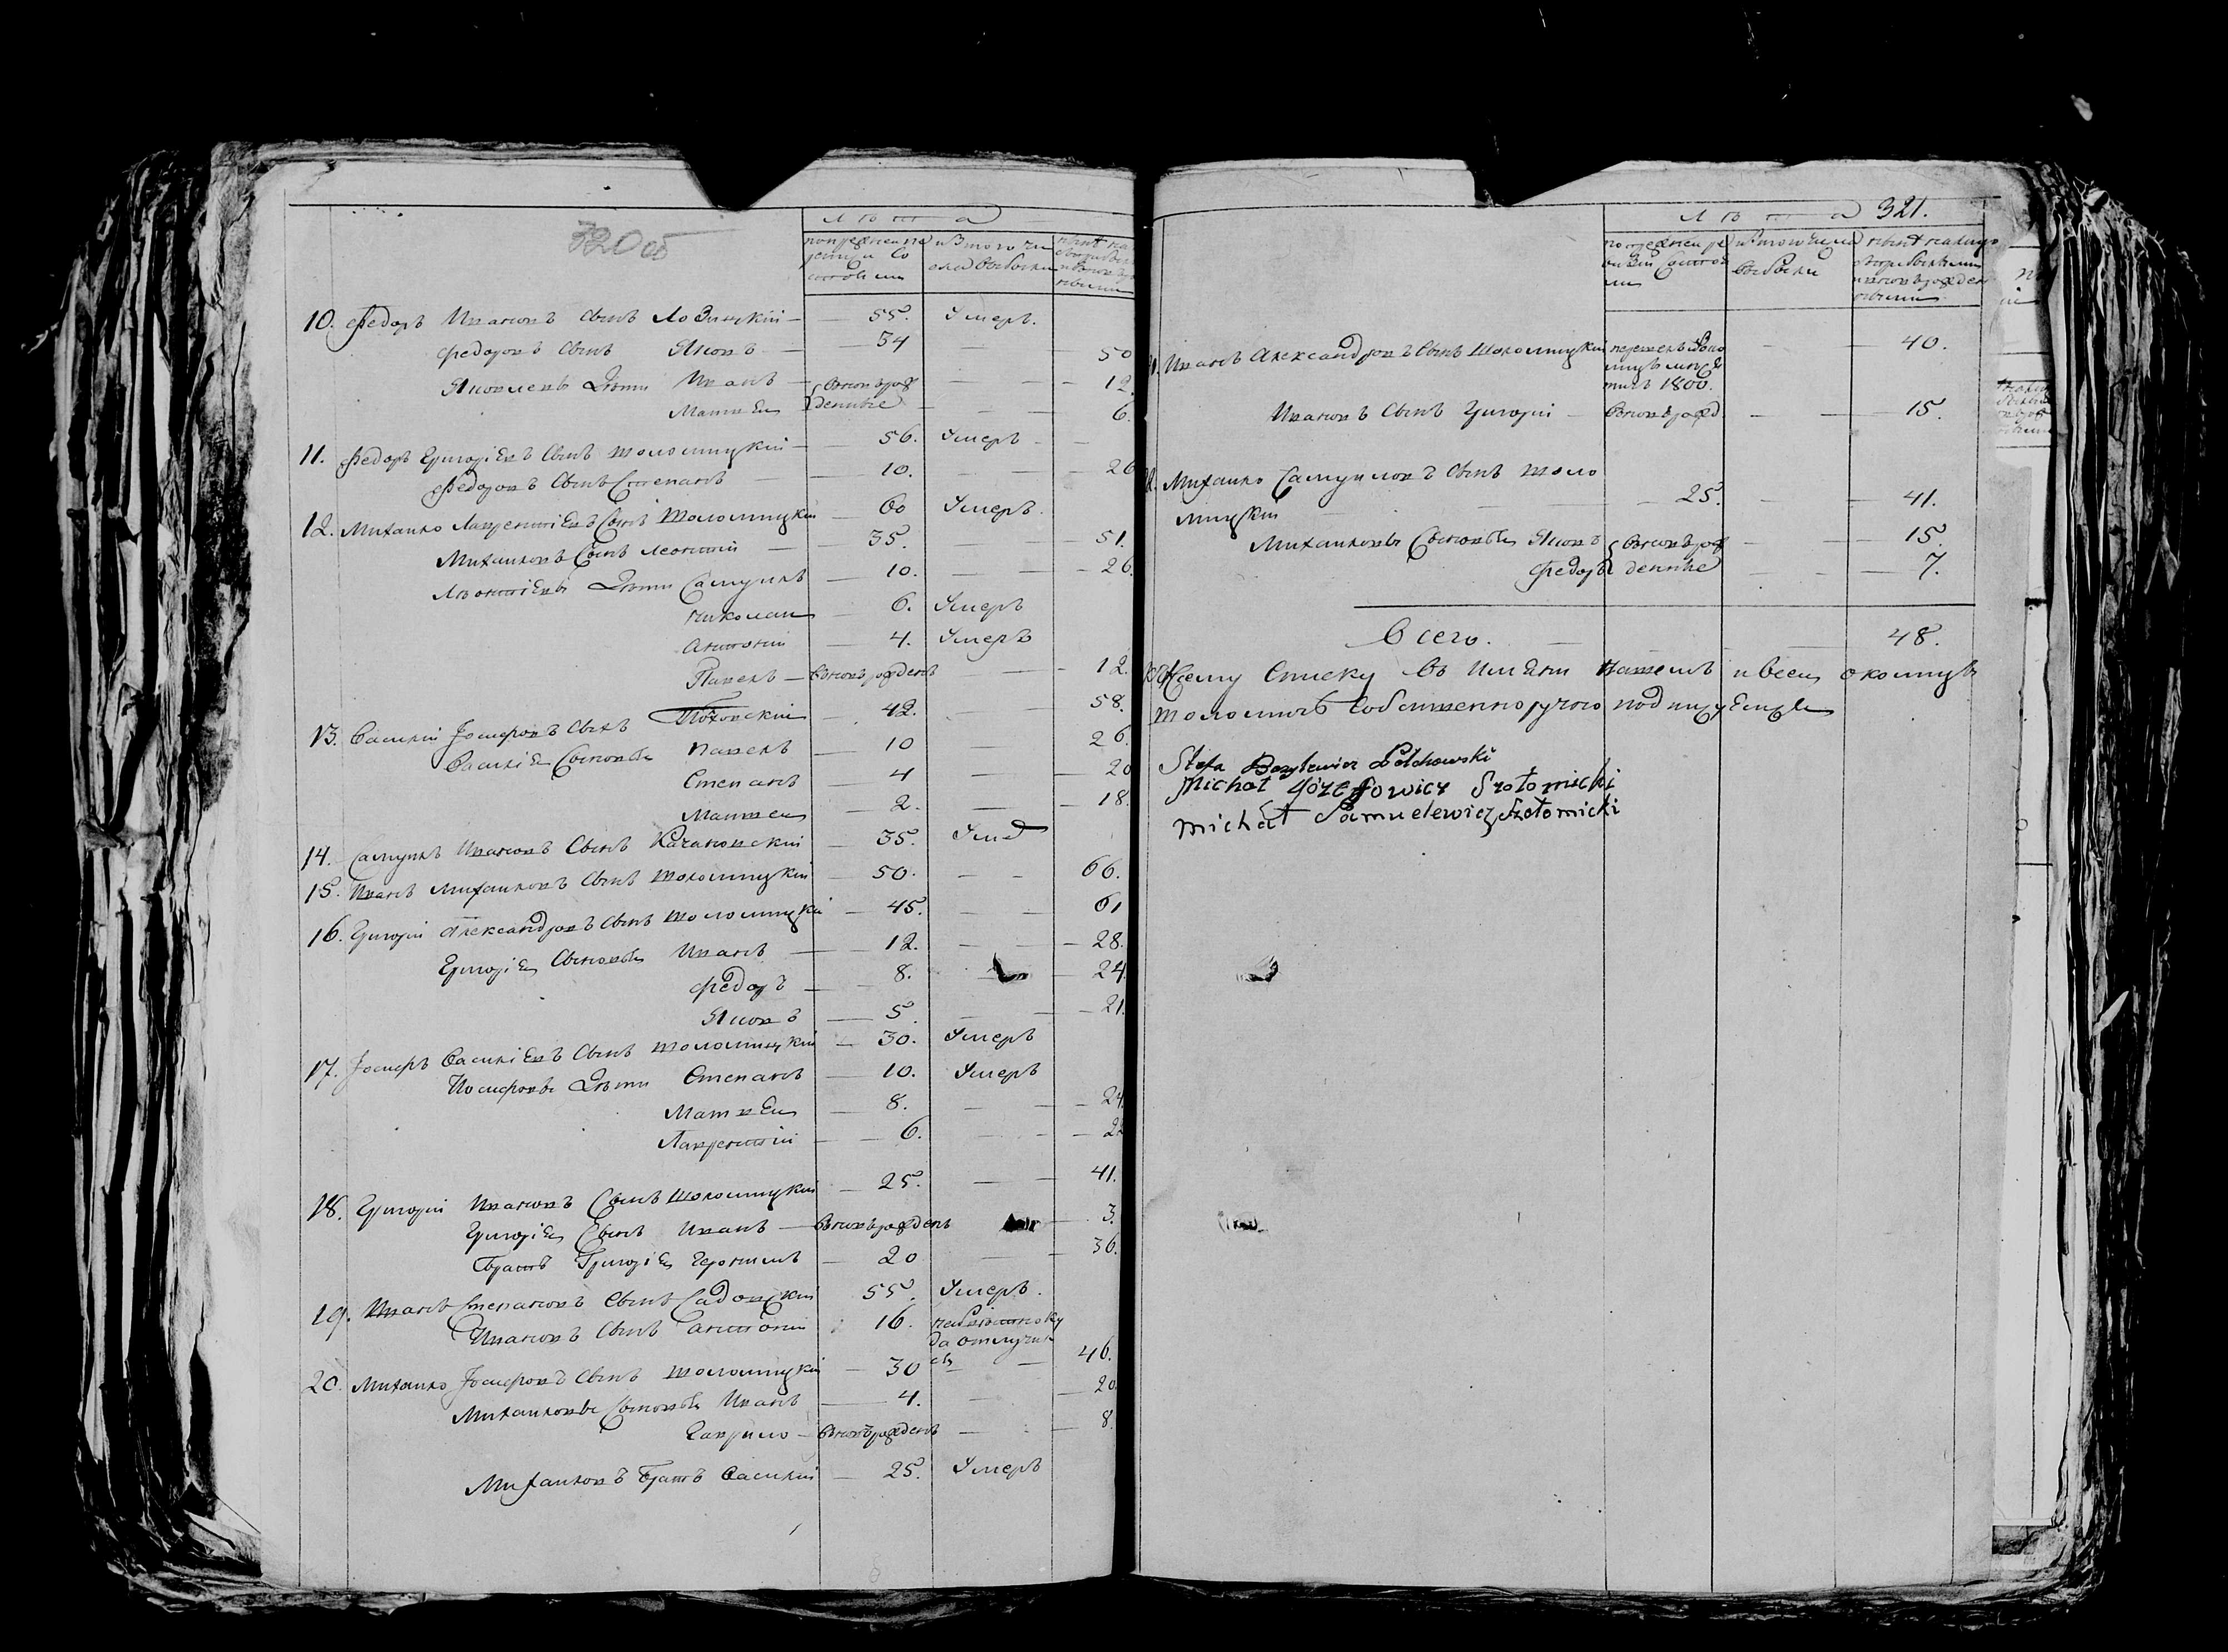 320 об
Лѣта
10. Федоръ Ивановъ Сынъ Лозицкій — 55. Умеръ.
Федоровъ Сынъ Яковъ — 34 — 50
Яковлевы Дѣти Иванъ — вновь рож — 12
Матвей денные — 6.
11. Федоръ Григоріевъ Сынъ Шоломицкій — 56. Умеръ
Федоровъ Сынъ Степанъ — 10. — 26
12. Михайло Лаврентіевъ Сынъ Шоломицкій — 60 Умеръ.
Михайловъ Сынъ Леонтій — 35. — 51.
Леонтіевы Дѣти Самуилъ — 10. — 26.
Николай 6. Умеръ
Антоній — 4. Умеръ
Павелъ — вновь рожденъ — 12.
13. Василій Іосифовъ Сынъ — 42. — 58.
Василіевы Сыновья Павелъ — 10 — 26.
Степанъ — 4 — 20
Матвей — 2. — 18.
14. Самуилъ Ивановъ Сынъ Качановскій — 35. Умер
15. Иванъ Михайловъ Сынъ Шоломицкій — 50. — 66.
16. Григорій Александровъ Сынъ Шоломицкій — 45. — 61
Григоріевы Сыновья Иванъ — 12. — 28.
Федоръ — 8. — 24.
Яковъ — 5. — 21.
17. Іосифъ Василіевъ Сынъ Шоломицкій — 30. Умеръ
Іосифовы Дѣти Степанъ — 10. Умеръ
Матвей — 8. — 24.
Лаврентій — 6. — 22
18. Григорій Ивановъ Сынъ Шоломицкій — 25. — 41.
Григоріевъ Сынъ Иванъ — вновь рожденъ — 3.
Братъ Григоріевъ — 20 — 36.
19. Иванъ Степановъ Сынъ Садовскій 55. Умеръ.
Ивановъ Сынъ Антоній 16. неизвѣстно ку
да отлучил
ся
20. Михайло Іосифовъ Сынъ Шоломицкій — 30 — 46.
Михайловы Сыновья Иванъ — 4. — 20.
Гаврило — вновь рожденъ — 8.
Михайловъ Братъ Василій — 25. Умеръ
Лѣта 321.
Иванъ Александровъ Сынъ Шоломицкій — 40.
1800.
Ивановъ Сынъ Григорій — вновь рожд — 15.
Михайло Самуиловъ Сынъ Шоло
мицкій — 25. — 41.
Михайловы Сыновья Яковъ вновь рож — 15.
Федоръ денные — 7.
Всего. — 48.
Къ сему списку въ имѣніи нашемъ и всей околицѣ
Шоломичъ собственноручно подписуемся
Stefa Bazylewicz Połchowski
Michał Józefowicz Szołomicki
Michał Samuelewicz Szołomicki